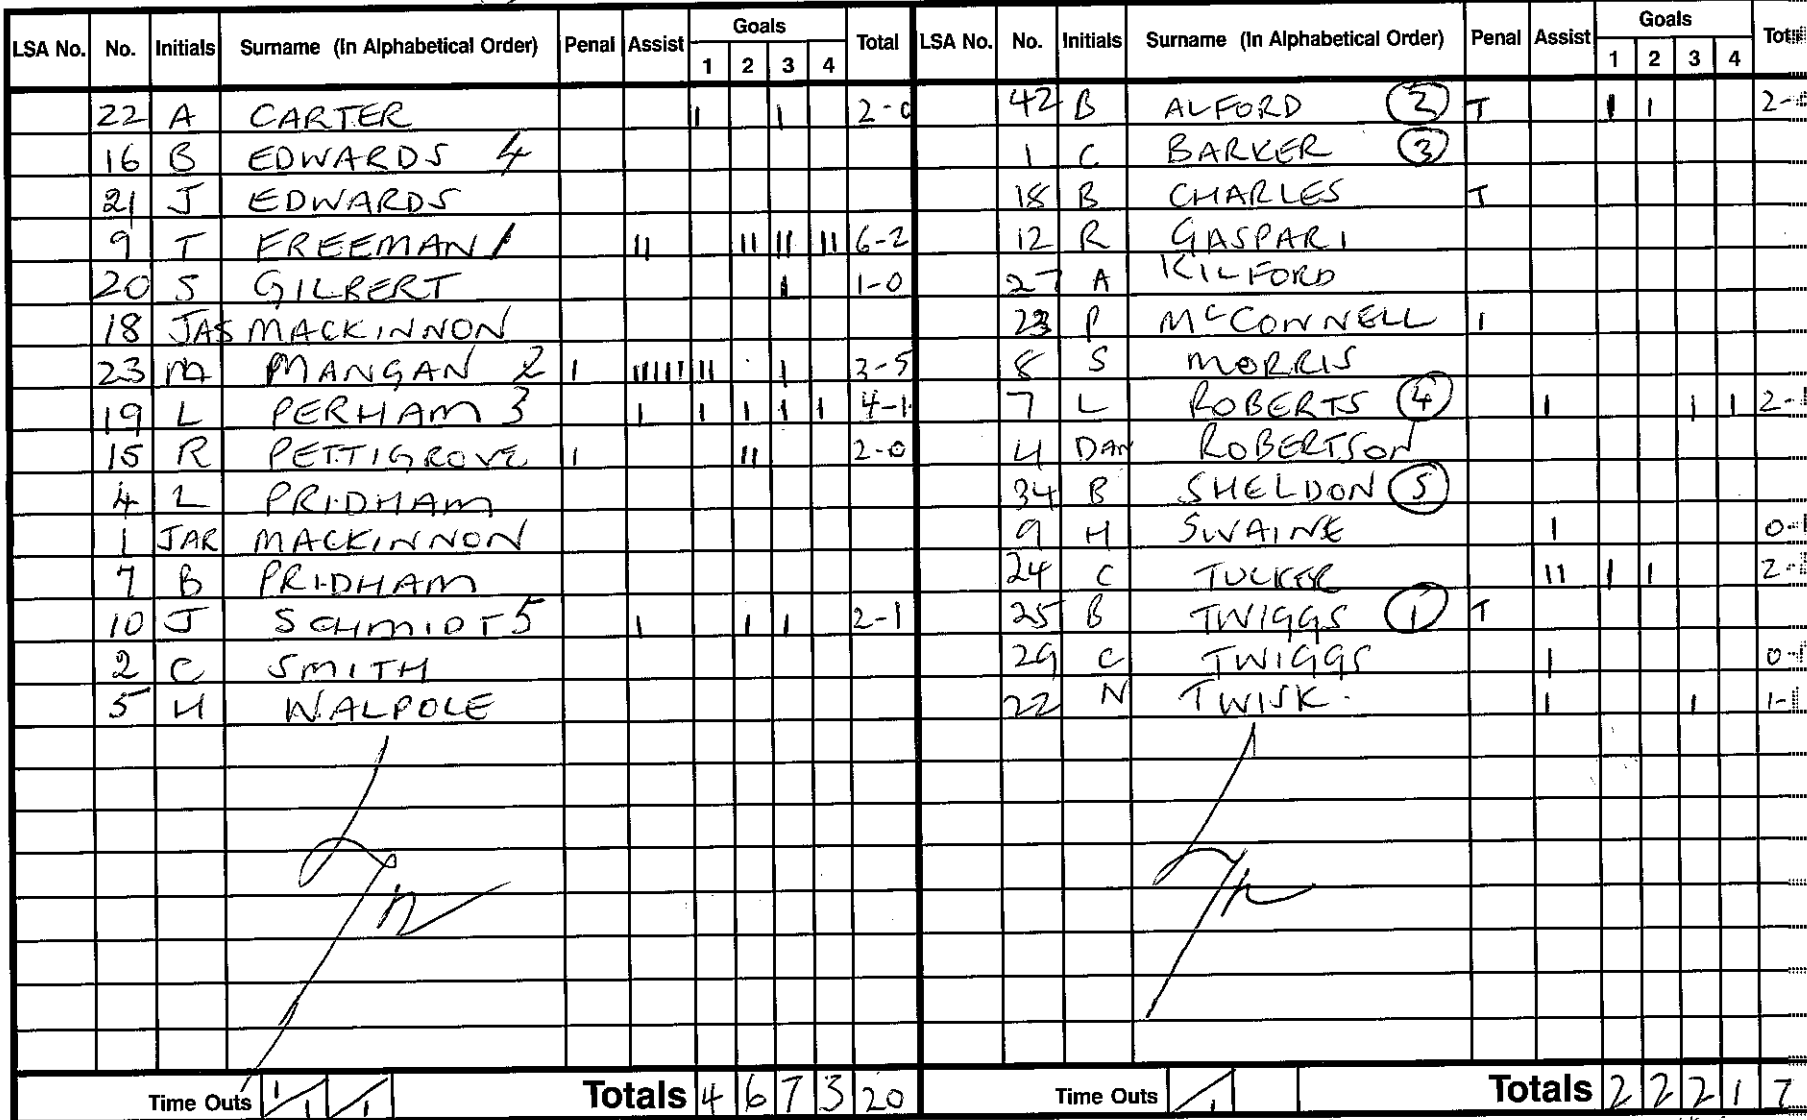 LSA No. No. Initials Surname (In Alphabetical Order) Penal Assist Goals 1 2 3 4 Total
22 A CARTER I I 2-0
16 B EDWARDS 4
21 J EDWARDS
9 T FREEMAN 1 II II II II 6-2
20 S GILBERT I 1-0
18 JAS MACKINNON
23 M MANGAN 2 I IIIII II I 3-5
19 L PERHAM 3 I I I I I 4-1
15 R PETTIGROVE I II 2-0
4 L PRIDHAM
1 JAR MACKINNON
7 B PRIDHAM
10 J SCHMIDT 5 I I I 2-1
2 C SMITH
5 H WALPOLE
Time Outs Totals 4 6 7 3 20
LSA No. No. Initials Surname (In Alphabetical Order) Penal Assist Goals 1 2 3 4
42 B ALFORD 2 T I I 2-
1 C BARKER 3
18 B CHARLES T
12 R GASPARI
27 A KILFORD
23 P McCONNELL I
8 S MORRIS
7 L ROBERTS 4 I I I 2-
4 DAN ROBERTSON
34 B SHELDON 5
9 H SWAINE I 0-
24 C TUCKER II I I 2-
25 B TWIGGS 1 T
29 C TWIGGS I 0-
22 N TWISK. I I 1-
Time Outs Totals 2 2 2 1 7